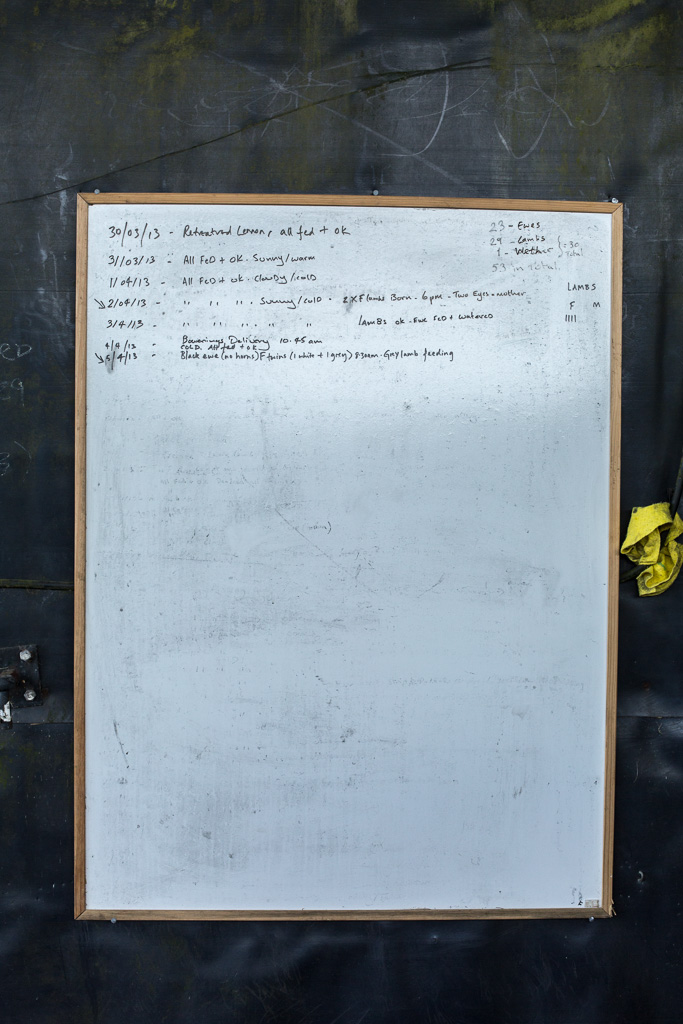 30/03/13 - all fed + ok
23 - Ewes
29 - Lambs
1 - Wether
= 30 Total
53 in Total
31/03/13 - All FeD + ok. Sunny/warm
1/04/13 - All FeD + ok. ClouDy/colD
2/04/13 - " " " . Sunny/colD . 2 x F lambs Born. 6pm. Two Eyes = mother
LAMBS
F M
3/4/13 - " " " . " " lamBs ok. Ewe FeD + watered
IIII
4/4/13 - Delivery 10.45 am
COLD. All fed + ok
5/4/13 - Black ewe (no horns) F twins (1 white + 1 grey) 8.30am. Grey lamb feeding